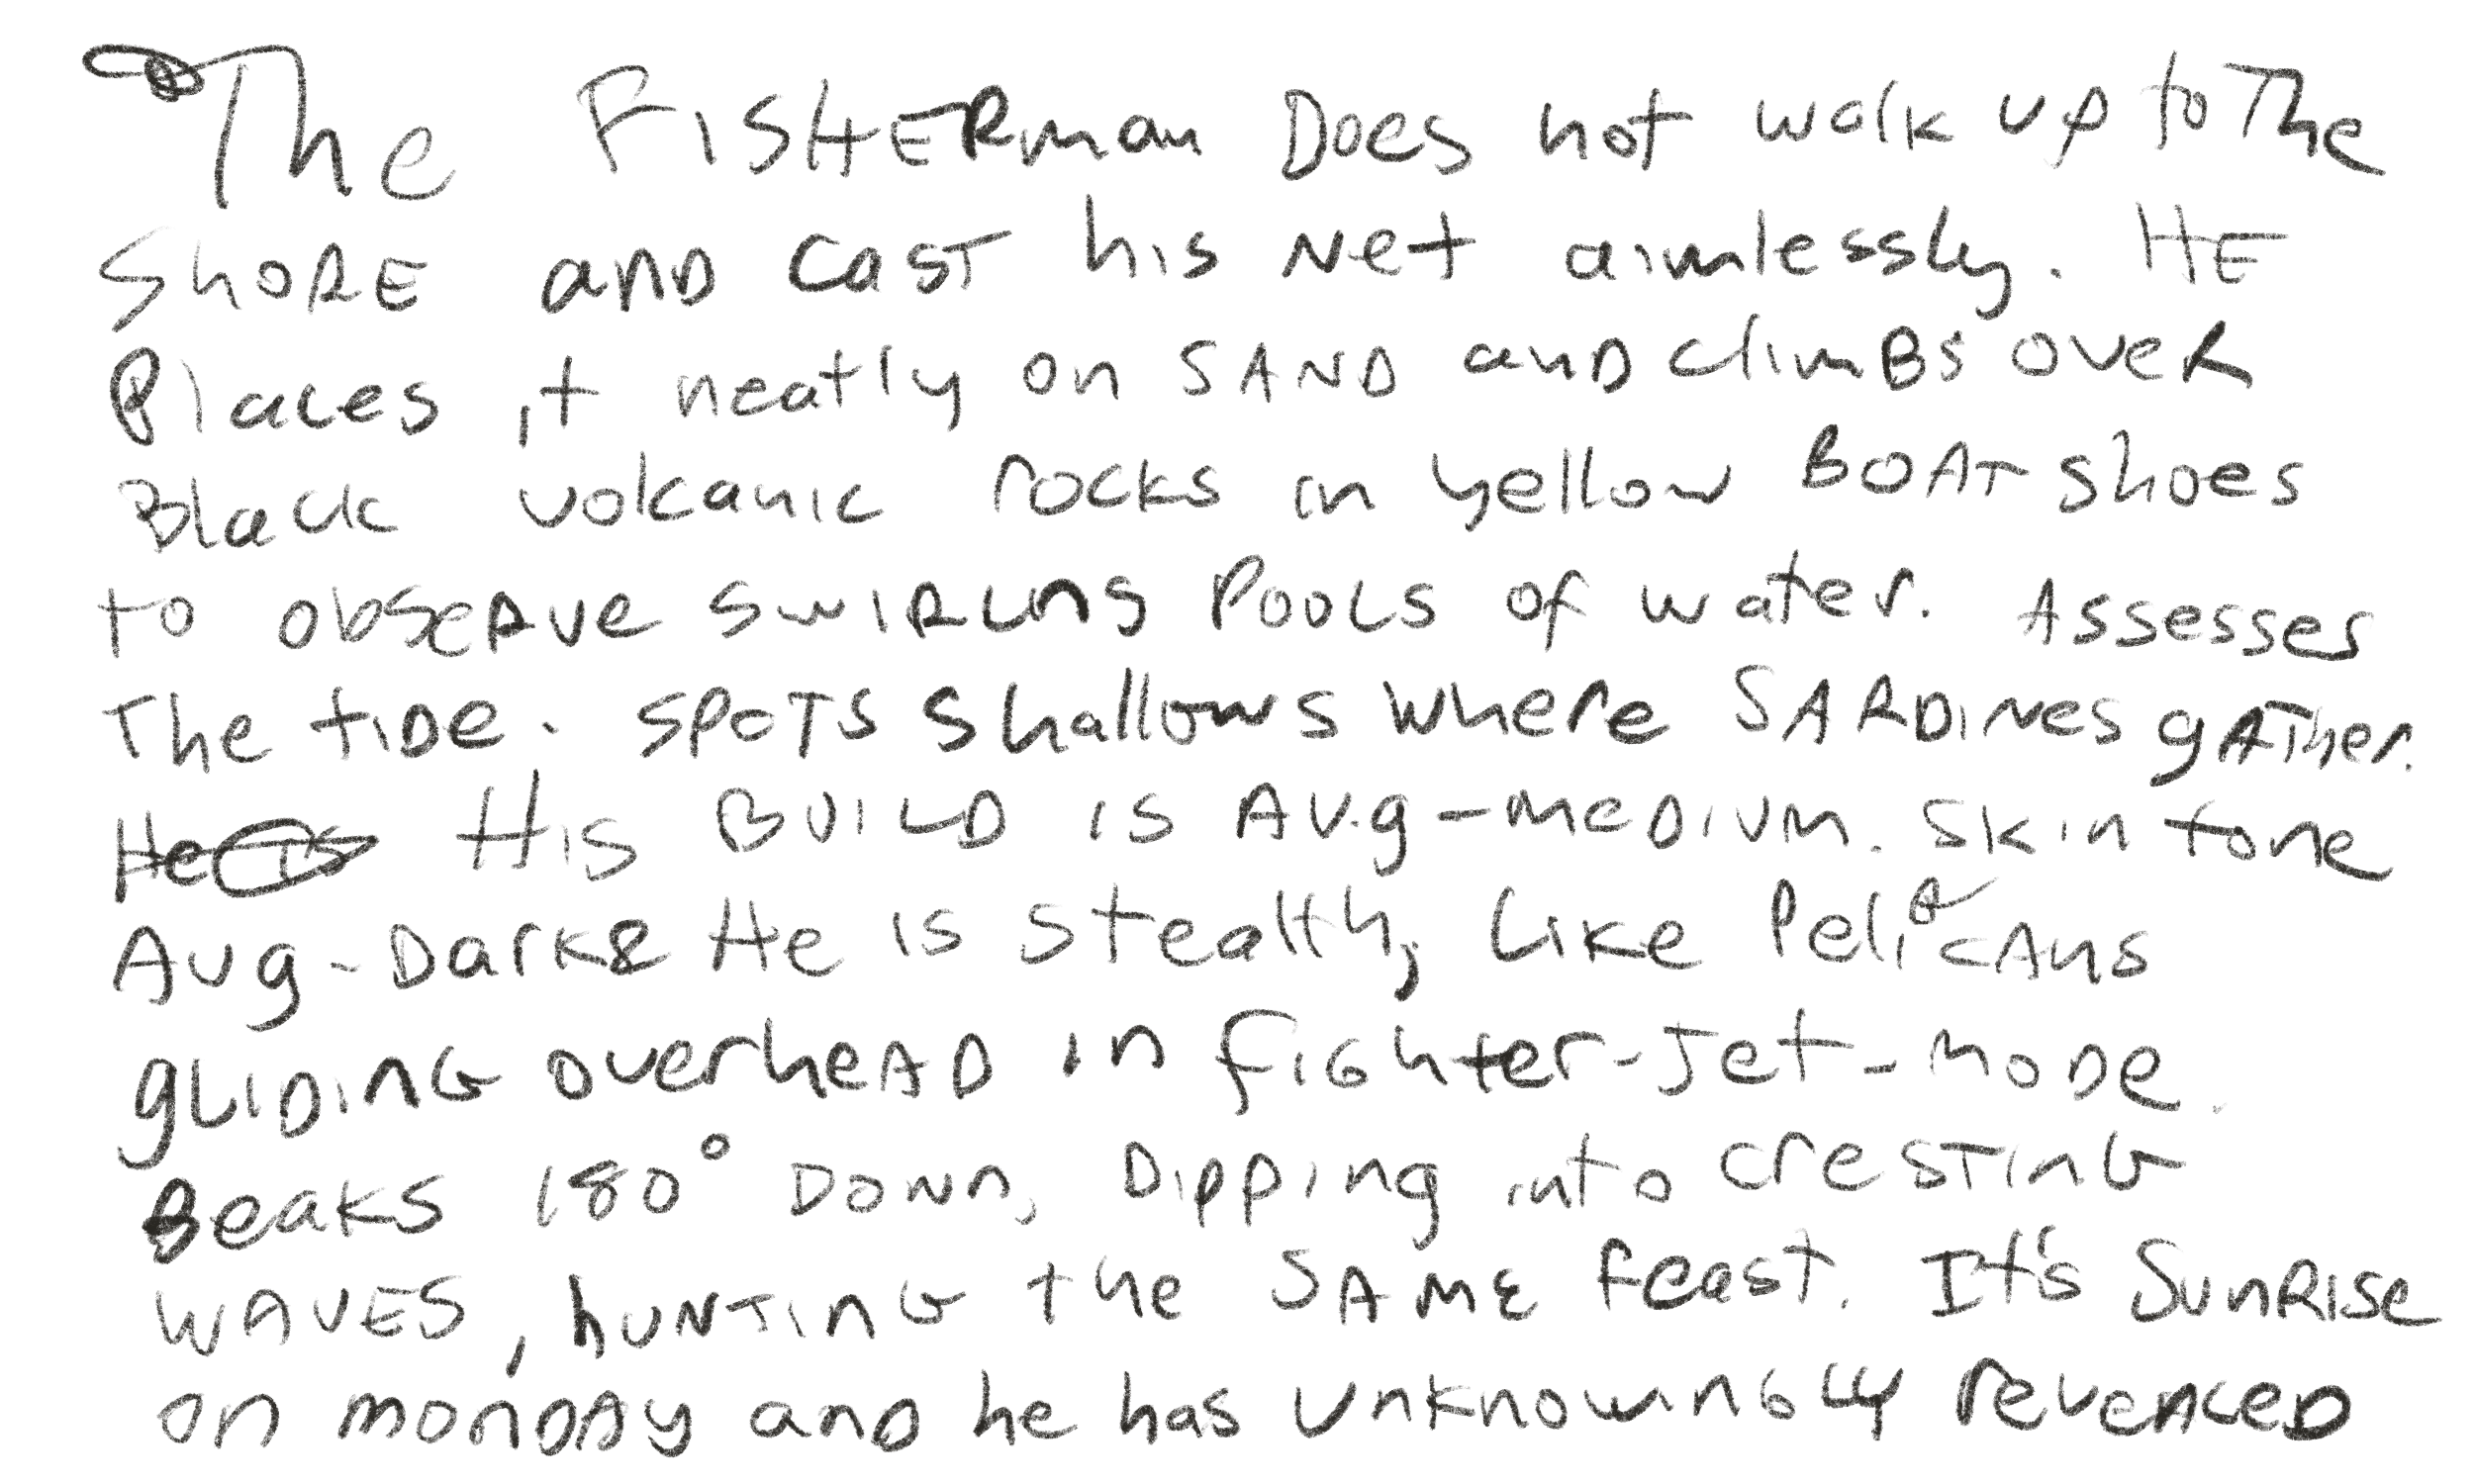 The FISHERman Does not walk up to The
ShORE anD CaST his Net aimlessly. HE
Places it neatly on SAND anD climBs over
Black volcanic rocks in yellow BOAT shoes
to obseRve swiRLing PooLs of water. Assesses
The tiDe. SPoTS Shallows where SARDiNes gATher.
He is His BUILD is Avg-meDium. Skin tone
Avg-Dark He is stealth, like PelicAns
gLiDinG overheAD in fiGhter-Jet-moDe.
Beaks 180° Down, Dipping into cresTinG
WAVES, huNTinG the SAME feast. It's SunRise
on monDAy anD he has unknowinGly reveAleD